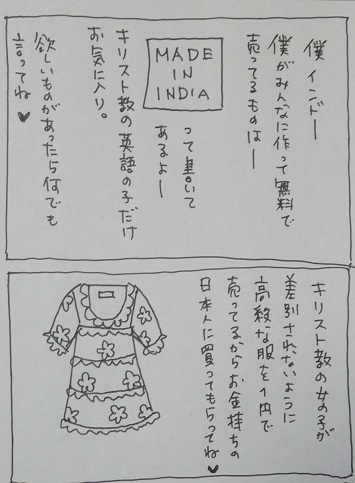 僕 インドー
僕がみんなに作って無料で
売ってるものはー
MADE
IN
INDIA
って書いて
あるよー
キリスト教の英語の子だけ
お気に入り。
欲しいものがあったら何でも
言ってね♥
キリスト教の女の子が
差別されないように
高級な服を1円で
売ってるからお金持ちの
日本人に買ってもらってね♥